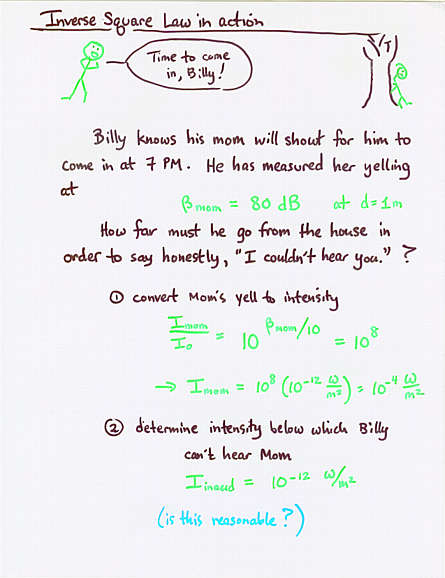 Inverse Square Law in action
Time to come
in, Billy!
Billy knows his mom will shout for him to
come in at 7 PM. He has measured her yelling
at
βmom = 80 dB at d=1m
How far must he go from the house in
order to say honestly, "I couldn't hear you." ?
① convert Mom's yell to intensity
Imom/I₀ = 10^(βmom/10) = 10⁸
→ Imom = 10⁸ (10⁻¹² W/m²) = 10⁻⁴ W/m²
② determine intensity below which Billy
can't hear Mom
Iinaud = 10⁻¹² W/m²
(is this reasonable?)